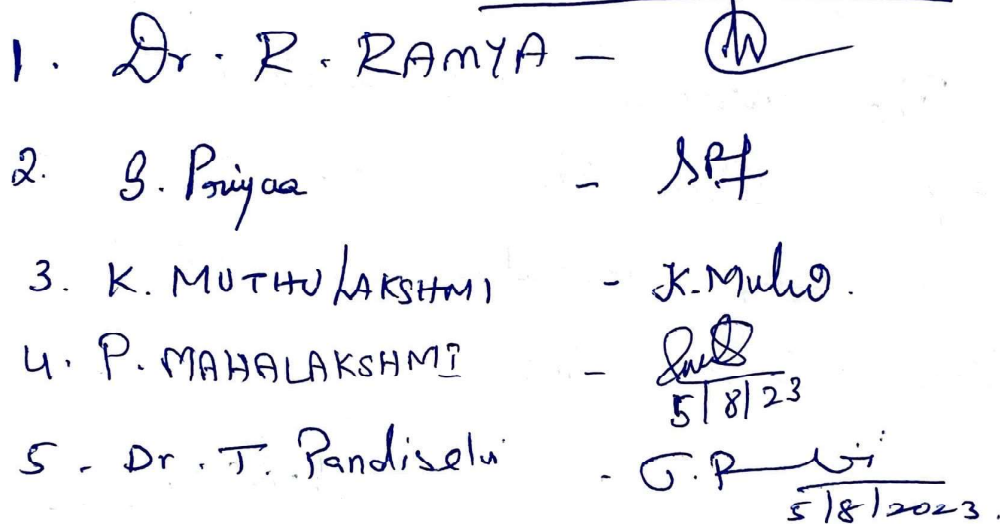 1. Dr. R. RAMYA -
2. S. Priyaa -
3. K. MUTHULAKSHMI - K. Muthu.
4. P. MAHALAKSHMI -
5/8/23
5. Dr. T. Pandiselvi - T. P
5/8/2023.